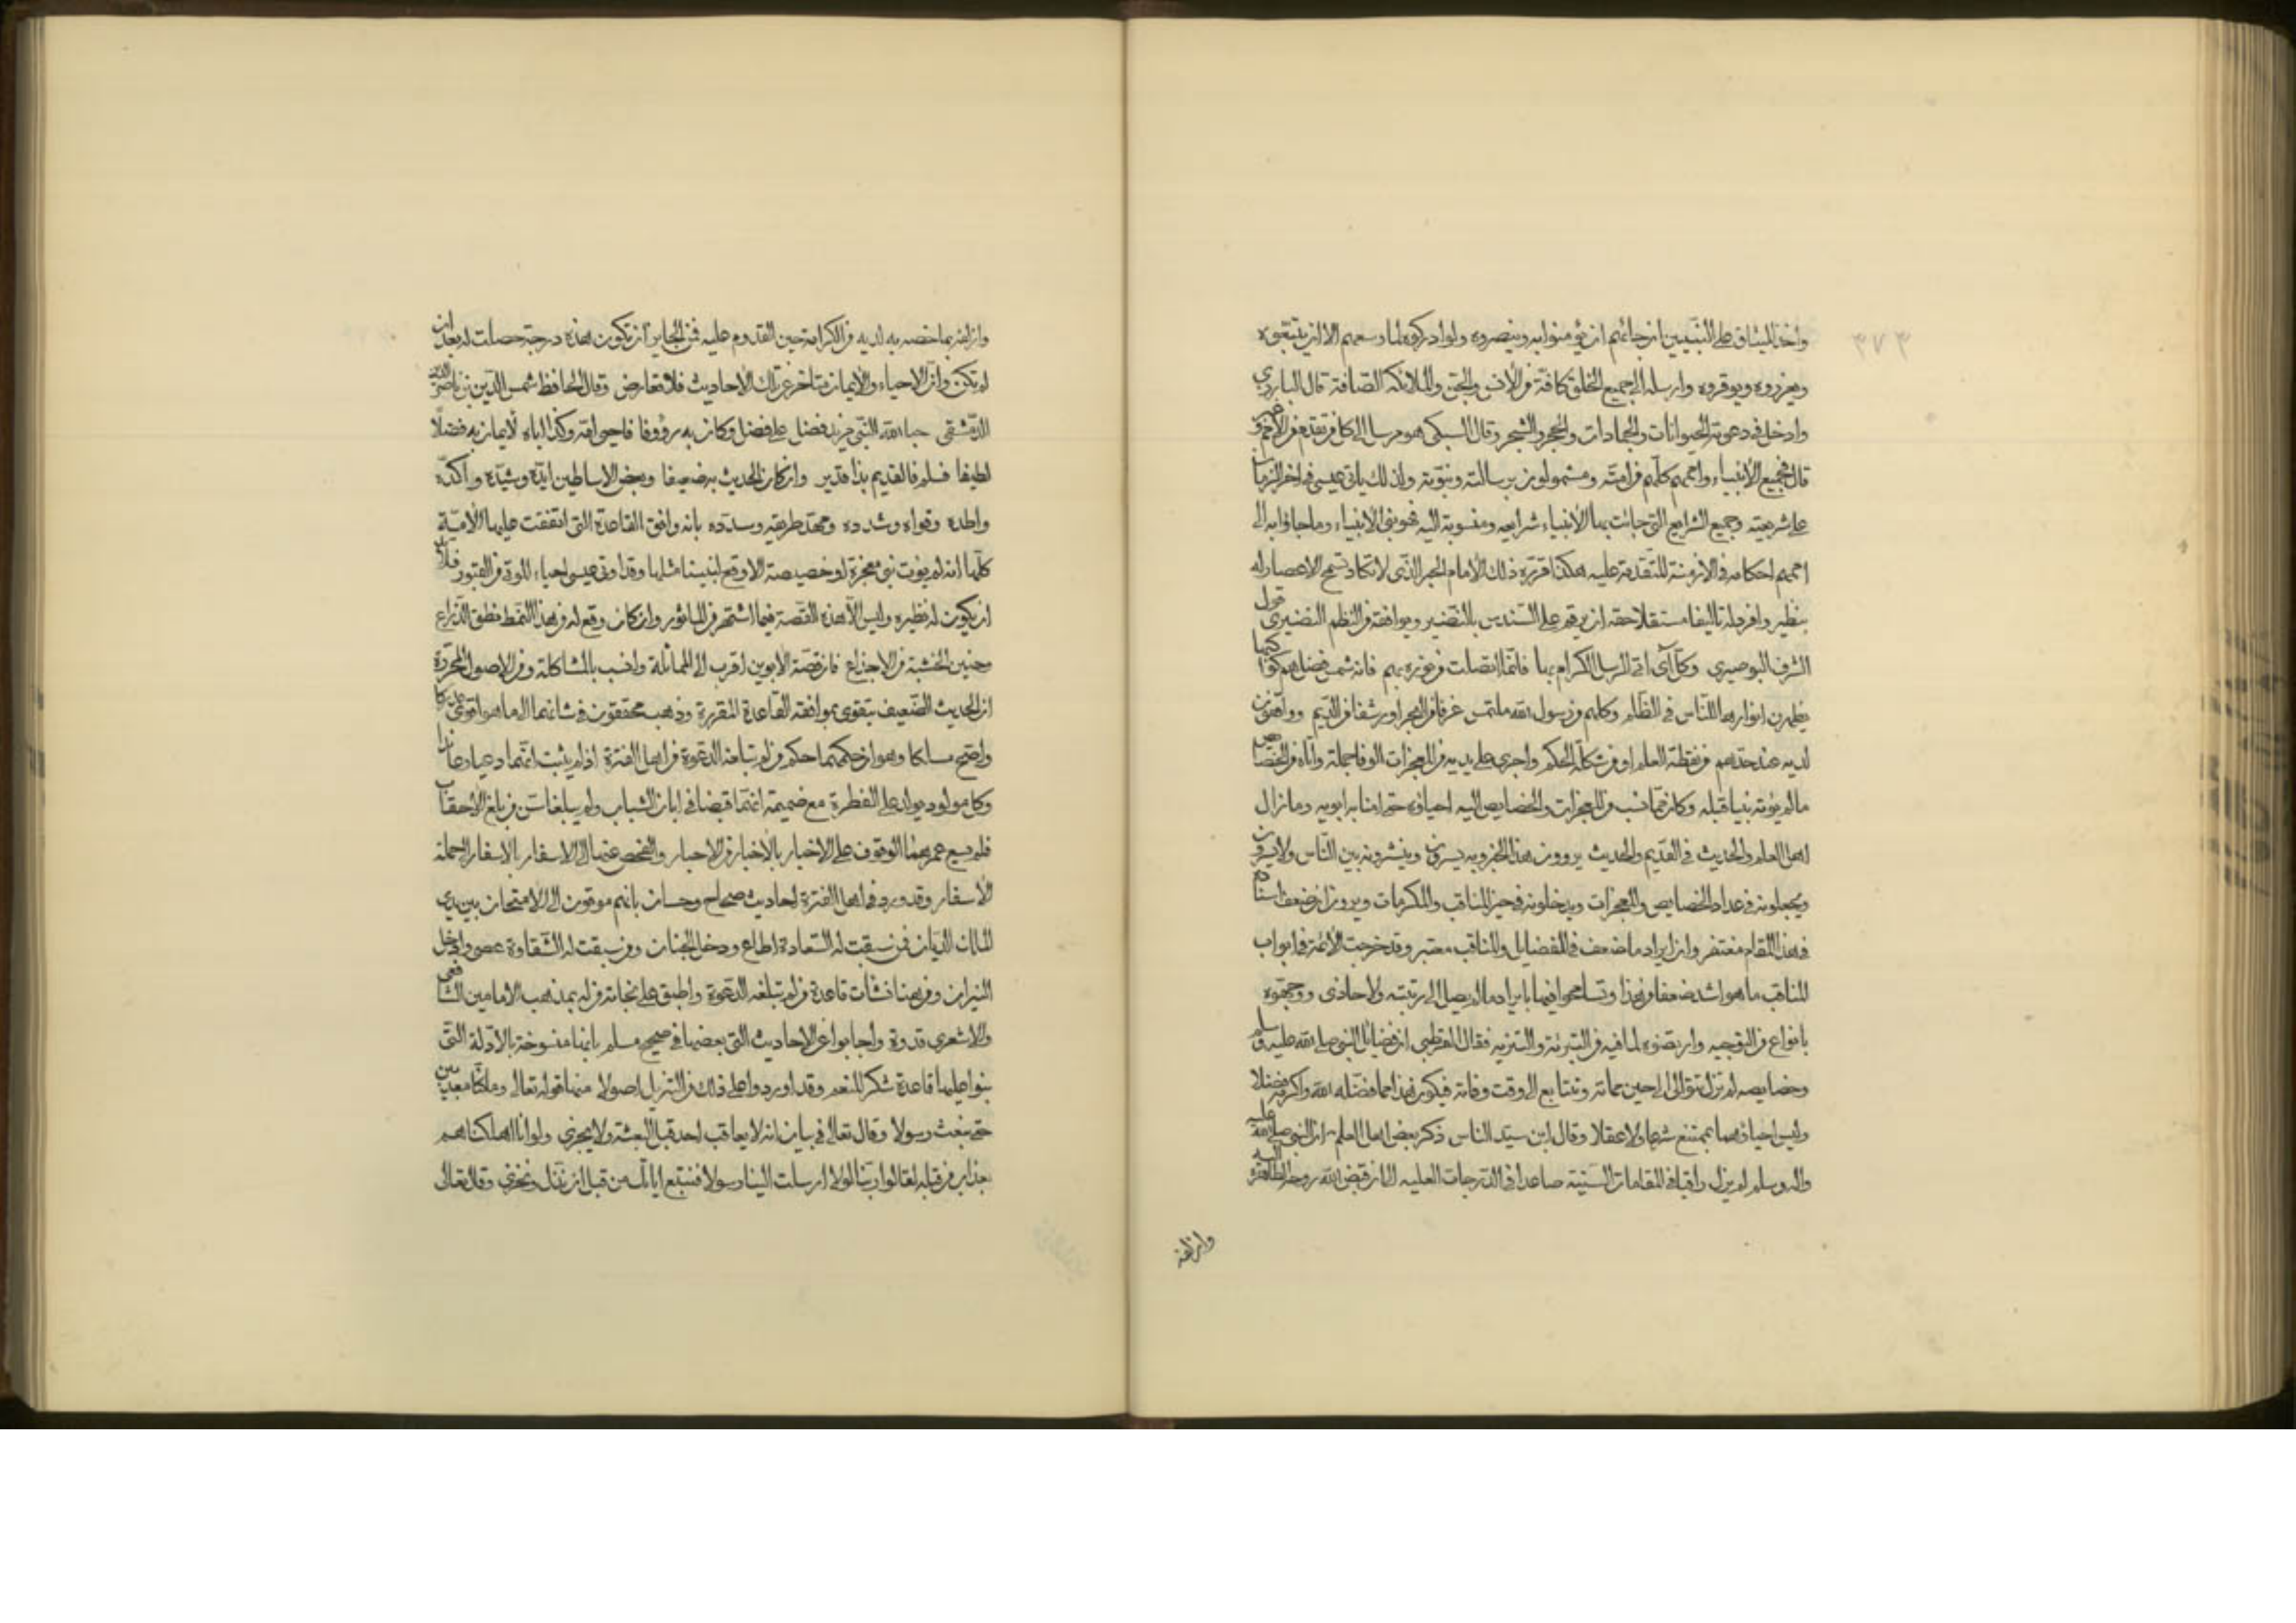 ٣٧٣
واخذ الميثاق على النبيين ان جائهم ان يؤمنوا به وينصروه ولو ادركوه لما وسعهم الا ان يتبعوه
ويعزروه ويوقروه وارسله الى جميع الخلق كافة من الانس والجن والملائكة الصافة قال البارزي
وادخل في دعوته الحيوانات والجمادات والحجر والشجر وقال السبكي هو مرسل الى كل من تقدم من الامم وغبر
قال فجميع الانبياء واممهم كلهم من امته ومشمولون برسالته ونبوته ولذلك ياتي عيسى في اخر الزمان
على شريعته وجميع الشرايع التي جائت بها الانبياء شرايعه ومنسوبة اليه فهو نبي الانبياء وما جاؤا به الى
اممهم احكامه في الازمنة المتقدمة عليه هكذا قرره ذلك الامام الحبر الذي لا تكاد تسمح الاعصار له
بنظير وافرد له تاليفا مستقلا حقه ان يرقم على السندس بالنضير ويوافقه من النظم النضيري قول
الشرف البوصيري وكل آي اتى الرسل الكرام بها فانما اتصلت من نوره بهم فانه شمس فضل هم كواكبها
يظهرن انوارها للناس في الظلم وكلهم من رسول الله ملتمس غرفا من البحر او رشفا من الديم وواقفون
لديه عند حدهم من نقطة العلم او من شكلة الحكم واجرى على يديه من المعجزات الوفا جملة وآتاه من الخصائص
مالم يؤته نبيا قبله وكان مما نسب من المعجزات والخصايص اليه احياؤه حتى امنا به ابويه وما زال
اهل العلم والحديث في القديم والحديث يروون هذا الخبر وبه يسرون وينشرونه بين الناس ولا يسرون
ويجعلونه في عداد الخصايص والمعجزات ويدخلونه في حيز المناقب والمكرمات ويرون ان ضعف اسناده
في هذا المقام مغتفر وان ايراد ما ضعف في الفضايل والمناقب معتبر وقد خرجت الائمة في ابواب
المناقب ما هو اشد ضعفا من هذا وتسامحوا فيها بايراد ما لم يصل الى رتبته ولا حاذى ووجهوه
بانواع من التوجيه وارتضوه لما فيه من التبرئة والتنزيه فقال القرطبي ان فضائل النبي صلى الله عليه وسلم
وخصايصه لم تزل تتوالى الى حين مماته وتتابع الى وقت وفاته فيكون هذا مما فضله الله واكرمه فضلا
وليس احياؤهما بممتنع شرعا ولا عقلا وقال ابن سيد الناس ذكر بعض اهل العلم ان النبي صلى الله عليه
واله وسلم لم يزل راقيا في المقامات السنية صاعدا في الدرجات العلية الى ان قبض الله روحه الطاهرة اليه
وازلفه
وازلفه بما خصه به لديه من الكرامة حين القدوم عليه فمن الجايز ان تكون هذه درجة حصلت له بعد ان
لم تكن وان الاحياء والايمان متاخر عن تلك الاحاديث فلا تعارض وقال الحافظ شمس الدين بن ناصر الدين
الدمشقي حبا الله النبي مزيد فضل على فضل وكان به رؤوفا فاحيى امه وكذا اباه لايمان به فضلا
لطيفا فسلم فالقديم بذا قدير وان كان الحديث به ضعيفا وبعض الاساطين ايده وشيده واكده
واطده وقواه وشدده ومهد طريقه وسدده بانه وافق القاعدة التي اتفقت عليها الامة
كلها انه لم يؤت نبي معجزة او خصيصة الا وقع لنبينا مثلها وقد اوتي عيسى احياء الموتى من القبور فلا بد
ان يكون له نظيره وليس الا هذه القصة فيما اشتهر من الماثور وان كان وقع له من هذا النمط نطق الذراع
وحنين الخشبة من الاجذاع فان قصة الابوين اقرب الى المماثلة وانسب بالمشاكلة ومن الاصول المحررة
ان الحديث الضعيف يتقوى بموافقه القاعدة المقررة وذهب محققون في شانهما الى ما هو اقوى مدركا
واوضح مسلكا وهو ان حكمهما حكم من لم تبلغه الدعوة من اهل الفترة اذ لم يثبت انهما دعيا وعاندا
وكل مولود يولد على الفطرة مع ضميمة انهما قبضا في ابان الشباب ولم يبلغا سن من بلغ الاحقاب
فلم يسع عمرهما الوقوف على الاخبار بالاخبار من الاحبار والفحص عنها الى الاسفار بالاسفار لجملة
الاسفار وقد ورد في اهل الفترة احاديث صحاح وحسان بانهم موقوفون الى الامتحان بين يدي
الملك الديان فمن سبقت له السعادة اطاع ودخل الجنان ومن سبقت له الشقاوة عصى وادخل
النيران ومن هنا نشأت قاعدة من لم تبلغه الدعوة واطبق على نجاته من له بمذهب الامامين الشافعي
والاشعري قدوة واجابوا عن الاحاديث التي بعضها في صحيح مسلم بانها منسوخة بالادلة التي
بنوا عليها قاعدة شكر المنعم وقد اوردوا على ذلك من التنزيل اصولا منها قوله تعالى وما كنا معذبين
حتى نبعث رسولا وقال تعالى في بيان انه لا يعاقب احد قبل البعثة ولا يجزى ولو انا اهلكناهم
بعذاب من قبله لقالوا ربنا لولا ارسلت الينا رسولا فنتبع اياتك من قبل ان نذل ونخزى وقال تعالى